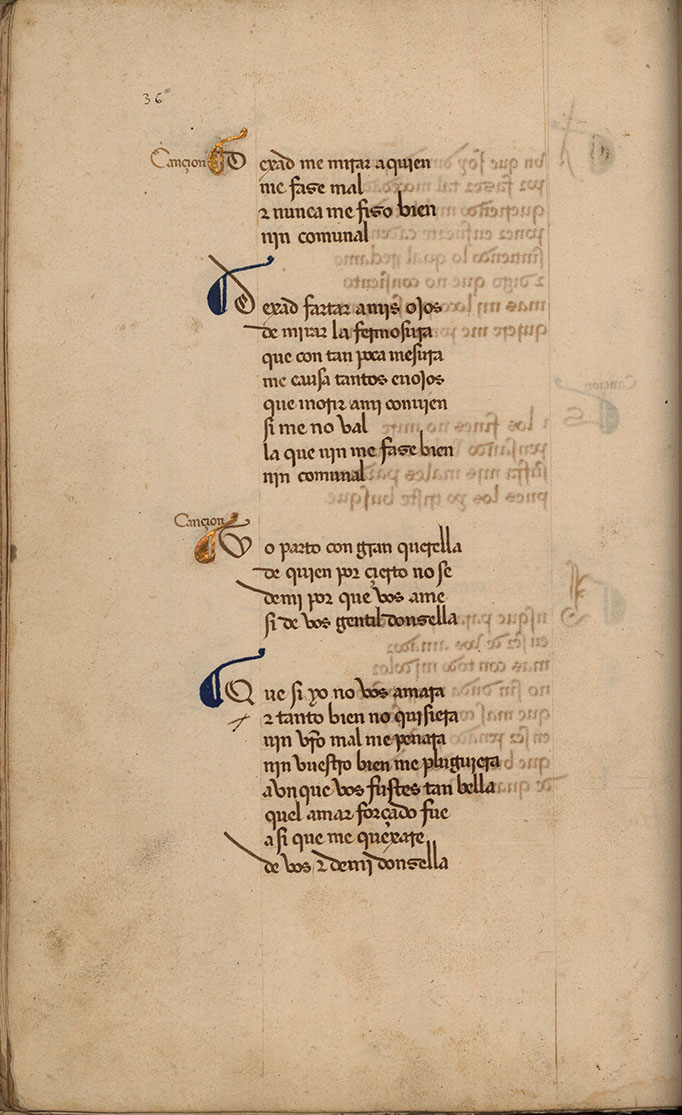 36
Cançion
Dexad me mirar a quien
me fase mal
⁊ nunca me fiso bien
nin comunal
Dexad fartar amis ojos
de mirar la fermosura
que con tan poca mesura
me causa tantos enojos
que morir ami convien
si me no val
la que nin me fase bien
nin comunal
Cançion
Yo parto con gran querella
de quien por çierto no se
demi por que vos ame
si de vos gentil donsella
Que si yo no vos amara
⁊ tanto bien no quisiera
nin vr̃o mal me penara
nin vuestro bien me pluguiera
avn que vos fustes tan bella
quel amar forçado fue
asi que me quexare
de vos ⁊ demi donsella